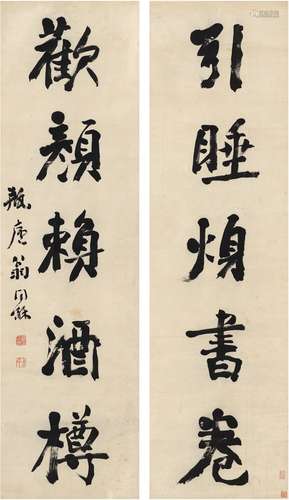 引睡煩書卷
歡顏賴酒樽
瓶廬翁同龢